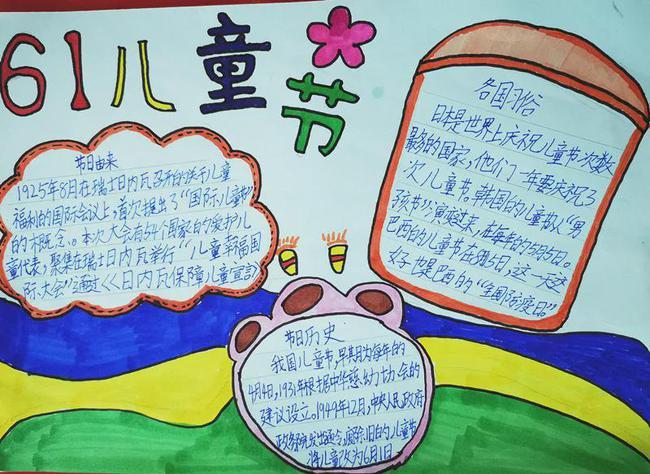 61儿童节
节日由来
1925年8月在瑞士日内瓦召开的关于儿童
福利的国际会议上,首次提出了“国际儿童节”
的概念。本次大会有54个国家的爱护儿
童代表,聚集在瑞士日内瓦举行“儿童幸福国
际大会”通过《日内瓦保障儿童宣言》
各国习俗
日本是世界上庆祝儿童节次数
最多的国家,他们一年要庆祝3
次儿童节。韩国的儿童节从“男
孩节”演变过来,在每年的5月5日。
巴西的儿童节在8月15日,这一天这
好也是巴西的“全国防疫日”。
节日历史
我国儿童节,早其月为每年的
4月4日,1931年根据中华慈幼协会的
建议设立。1949年12月,中央人民政府
政务院发出通令,废除旧的儿童节
将儿童改为6月1日